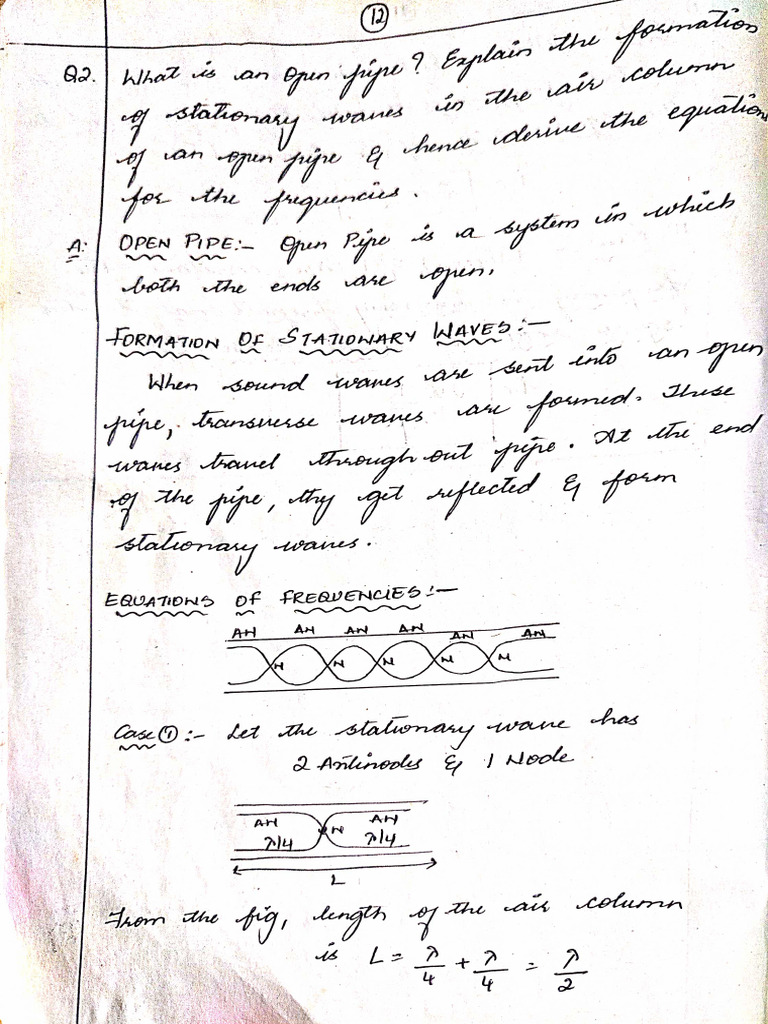 12
Q2. What is an open pipe? Explain the formation
of stationary waves in the air column
of an open pipe & hence derive the equation
for the frequencies.
A: OPEN PIPE:- Open Pipe is a system in which
both the ends are open.
FORMATION OF STATIONARY WAVES:-
When sound waves are sent into an open
pipe, transverse waves are formed. These
waves travel through out pipe. At the end
of the pipe, thy get reflected & form
stationary waves.
EQUATIONS OF FREQUENCIES:-
AN AN AN AN AN AN
N N N N N
Case ①:- Let the stationary wave has
2 Antinodes & 1 Node
AN N AN
λ/4 λ/4
L
From the fig, length of the air column
is L = λ/4 + λ/4 = λ/2